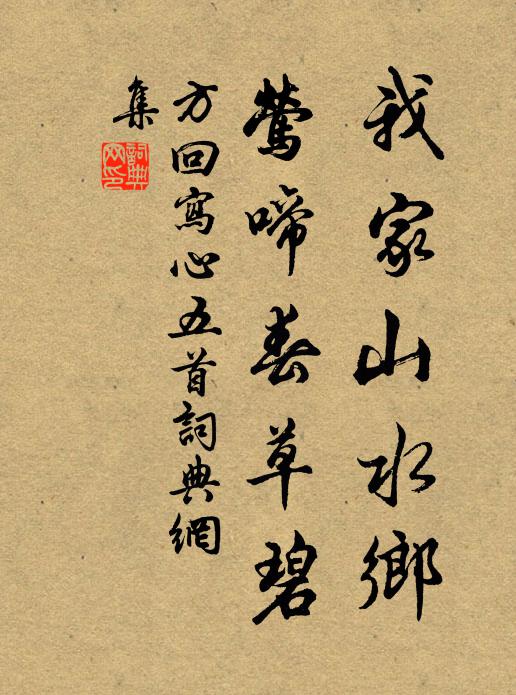 我家山水鄉
鶯啼春草碧
方回寫心五首詞典網
集
詞典網印